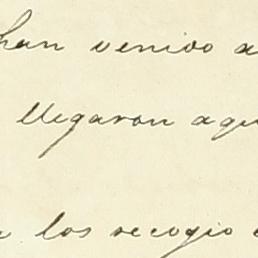 han venido a
llegaron aqu
los recogio